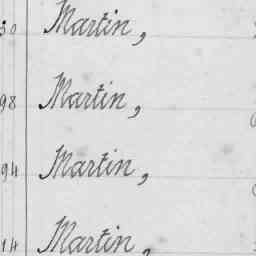 30 Martin,
98 Martin,
94 Martin,
14 Martin,